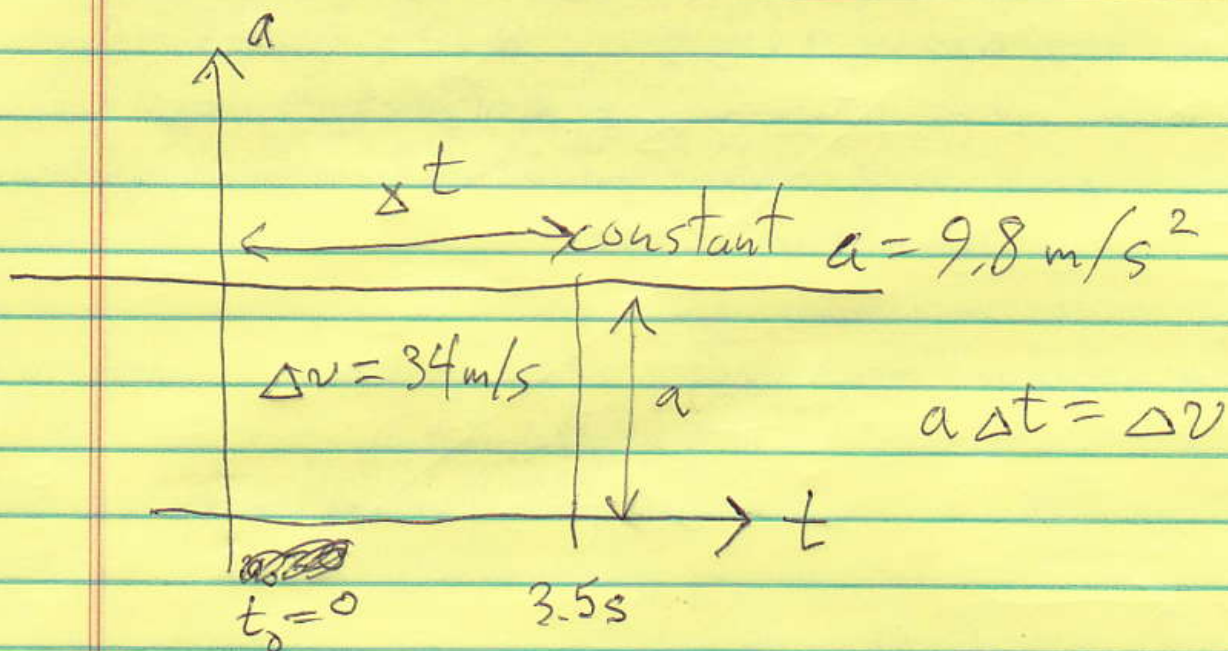 a
Δt
constant a = 9.8 m/s²
Δv = 34 m/s
a
a Δt = Δv
t
t₀ = 0
3.5s